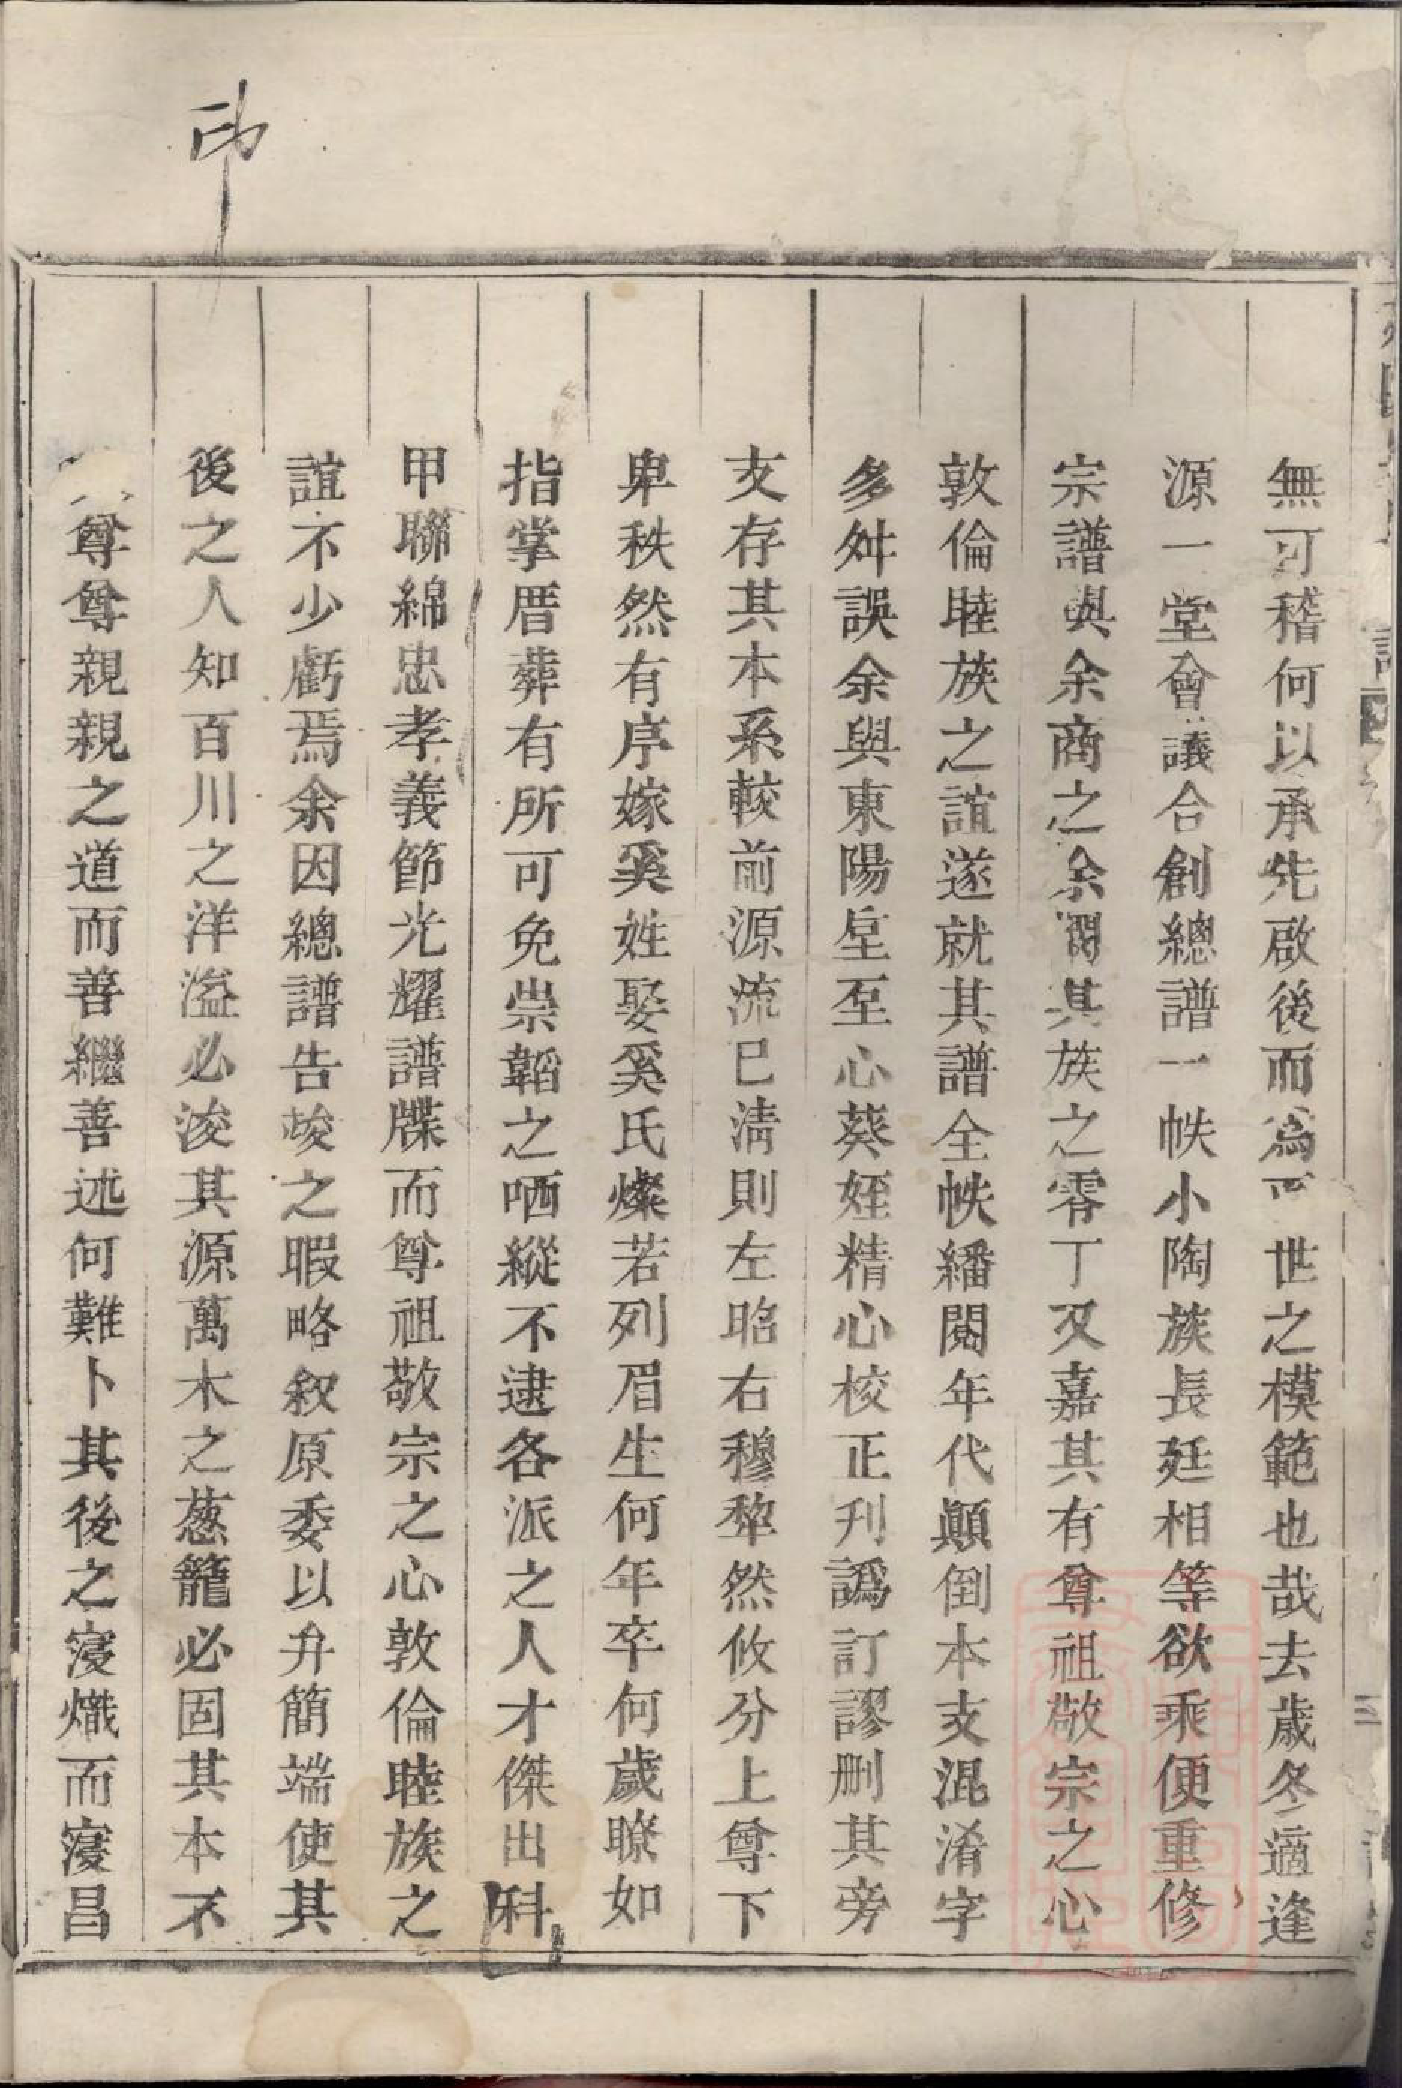 印
無可稽何以承先啟後而為世之模範也哉去歲冬適逢
源一堂會議合創總譜一帙小陶族長廷相等欲乘便重修
宗譜與余商之余憫其族之零丁又嘉其有尊祖敬宗之心
敦倫睦族之誼遂就其譜全帙繙閱年代顛倒本支混淆字
多舛誤余與東陽垕至心葵姪精心校正刋譌訂謬刪其旁
支存其本系較前源流已淸則左昭右穆犂然攸分上尊下
卑秩然有序嫁奚姓娶奚氏燦若列眉生何年卒何歲瞭如
指掌厝葬有所可免崇韜之哂縱不逮各派之人才傑出科
甲聯綿忠孝義節光耀譜牒而尊祖敬宗之心敦倫睦族之
誼不少虧焉余因總譜告竣之暇略叙原委以弁簡端使其
後之人知百川之洋溢必浚其源萬木之葱籠必固其本不
尊尊親親之道而善繼善述何難卜其後之寖熾而寖昌